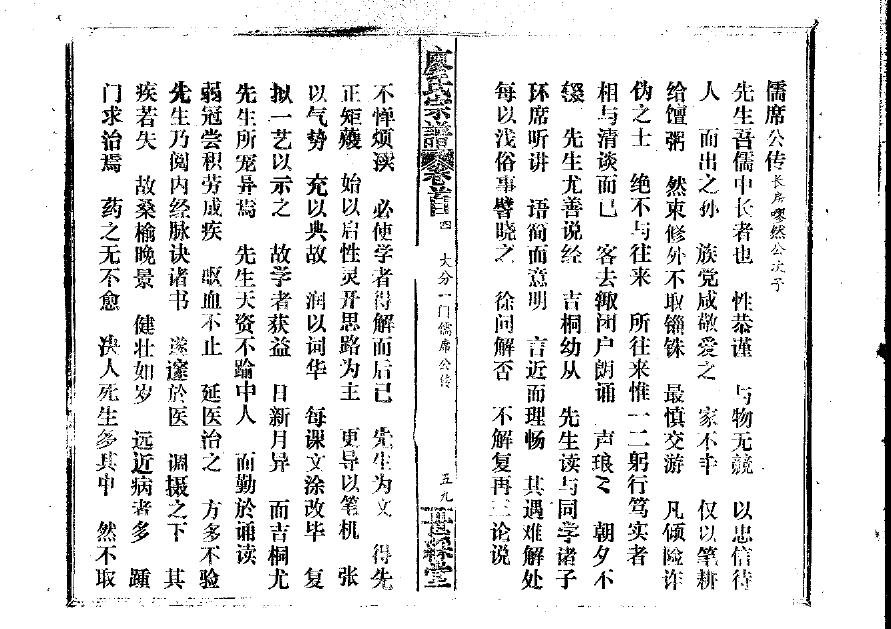 儒席公传 长房 然公次子
先生吾儒中长者也 性恭谨 与物无兢 以忠信待
人 而出之孙 族党咸敬爱之 家不丰 仅以笔耕
给饘粥 然束修外不取锱铢 最慎交游 凡倾险诈
伪之士 绝不与往来 所往来惟一二躬行笃实者
相与清谈而已 客去辄闭户朗诵 声琅々 朝夕不
缀 先生尤善说经 吉桐幼从 先生读与同学诸子
环席听讲 语简而意明 言近而理畅 其遇难解处
每以浅俗事譬晓之 徐问解否 不解复再三论说
廖氏宗谱 卷首 四 大分一门儒席公传 五九
不惮烦渎 必使学者得解而后已 先生为文 得先
正矩矱 始以启性灵开思路为主 更导以笔机 张
以气势 充以典故 润以词华 每课文涂改毕 复
拟一艺以示之 故学者获益 日新月异 而吉桐尤
先生所宠异焉 先生天资不踰中人 而勤於诵读
弱冠尝积劳成疾 呕血不止 延医治之 方多不验
先生乃阅内经脉诀诸书 遂邃於医 调摄之下 其
疾若失 故桑榆晚景 健壮如岁 远近病者多 踵
门求治焉 药之无不愈 决人死生多其中 然不取